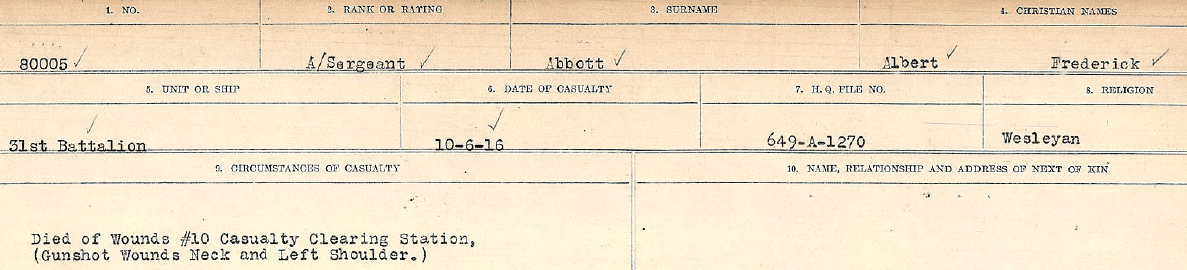 1. NO. 2. RANK OR RATING 3. SURNAME 4. CHRISTIAN NAMES
80005 A/Sergeant Abbott Albert Frederick
5. UNIT OR SHIP 6. DATE OF CASUALTY 7. H.Q. FILE NO. 8. RELIGION
31st Battalion 10-6-16 649-A-1270 Wesleyan
9. CIRCUMSTANCES OF CASUALTY 10. NAME, RELATIONSHIP AND ADDRESS OF NEXT OF KIN
Died of Wounds #10 Casualty Clearing Station,
(Gunshot Wounds Neck and Left Shoulder.)